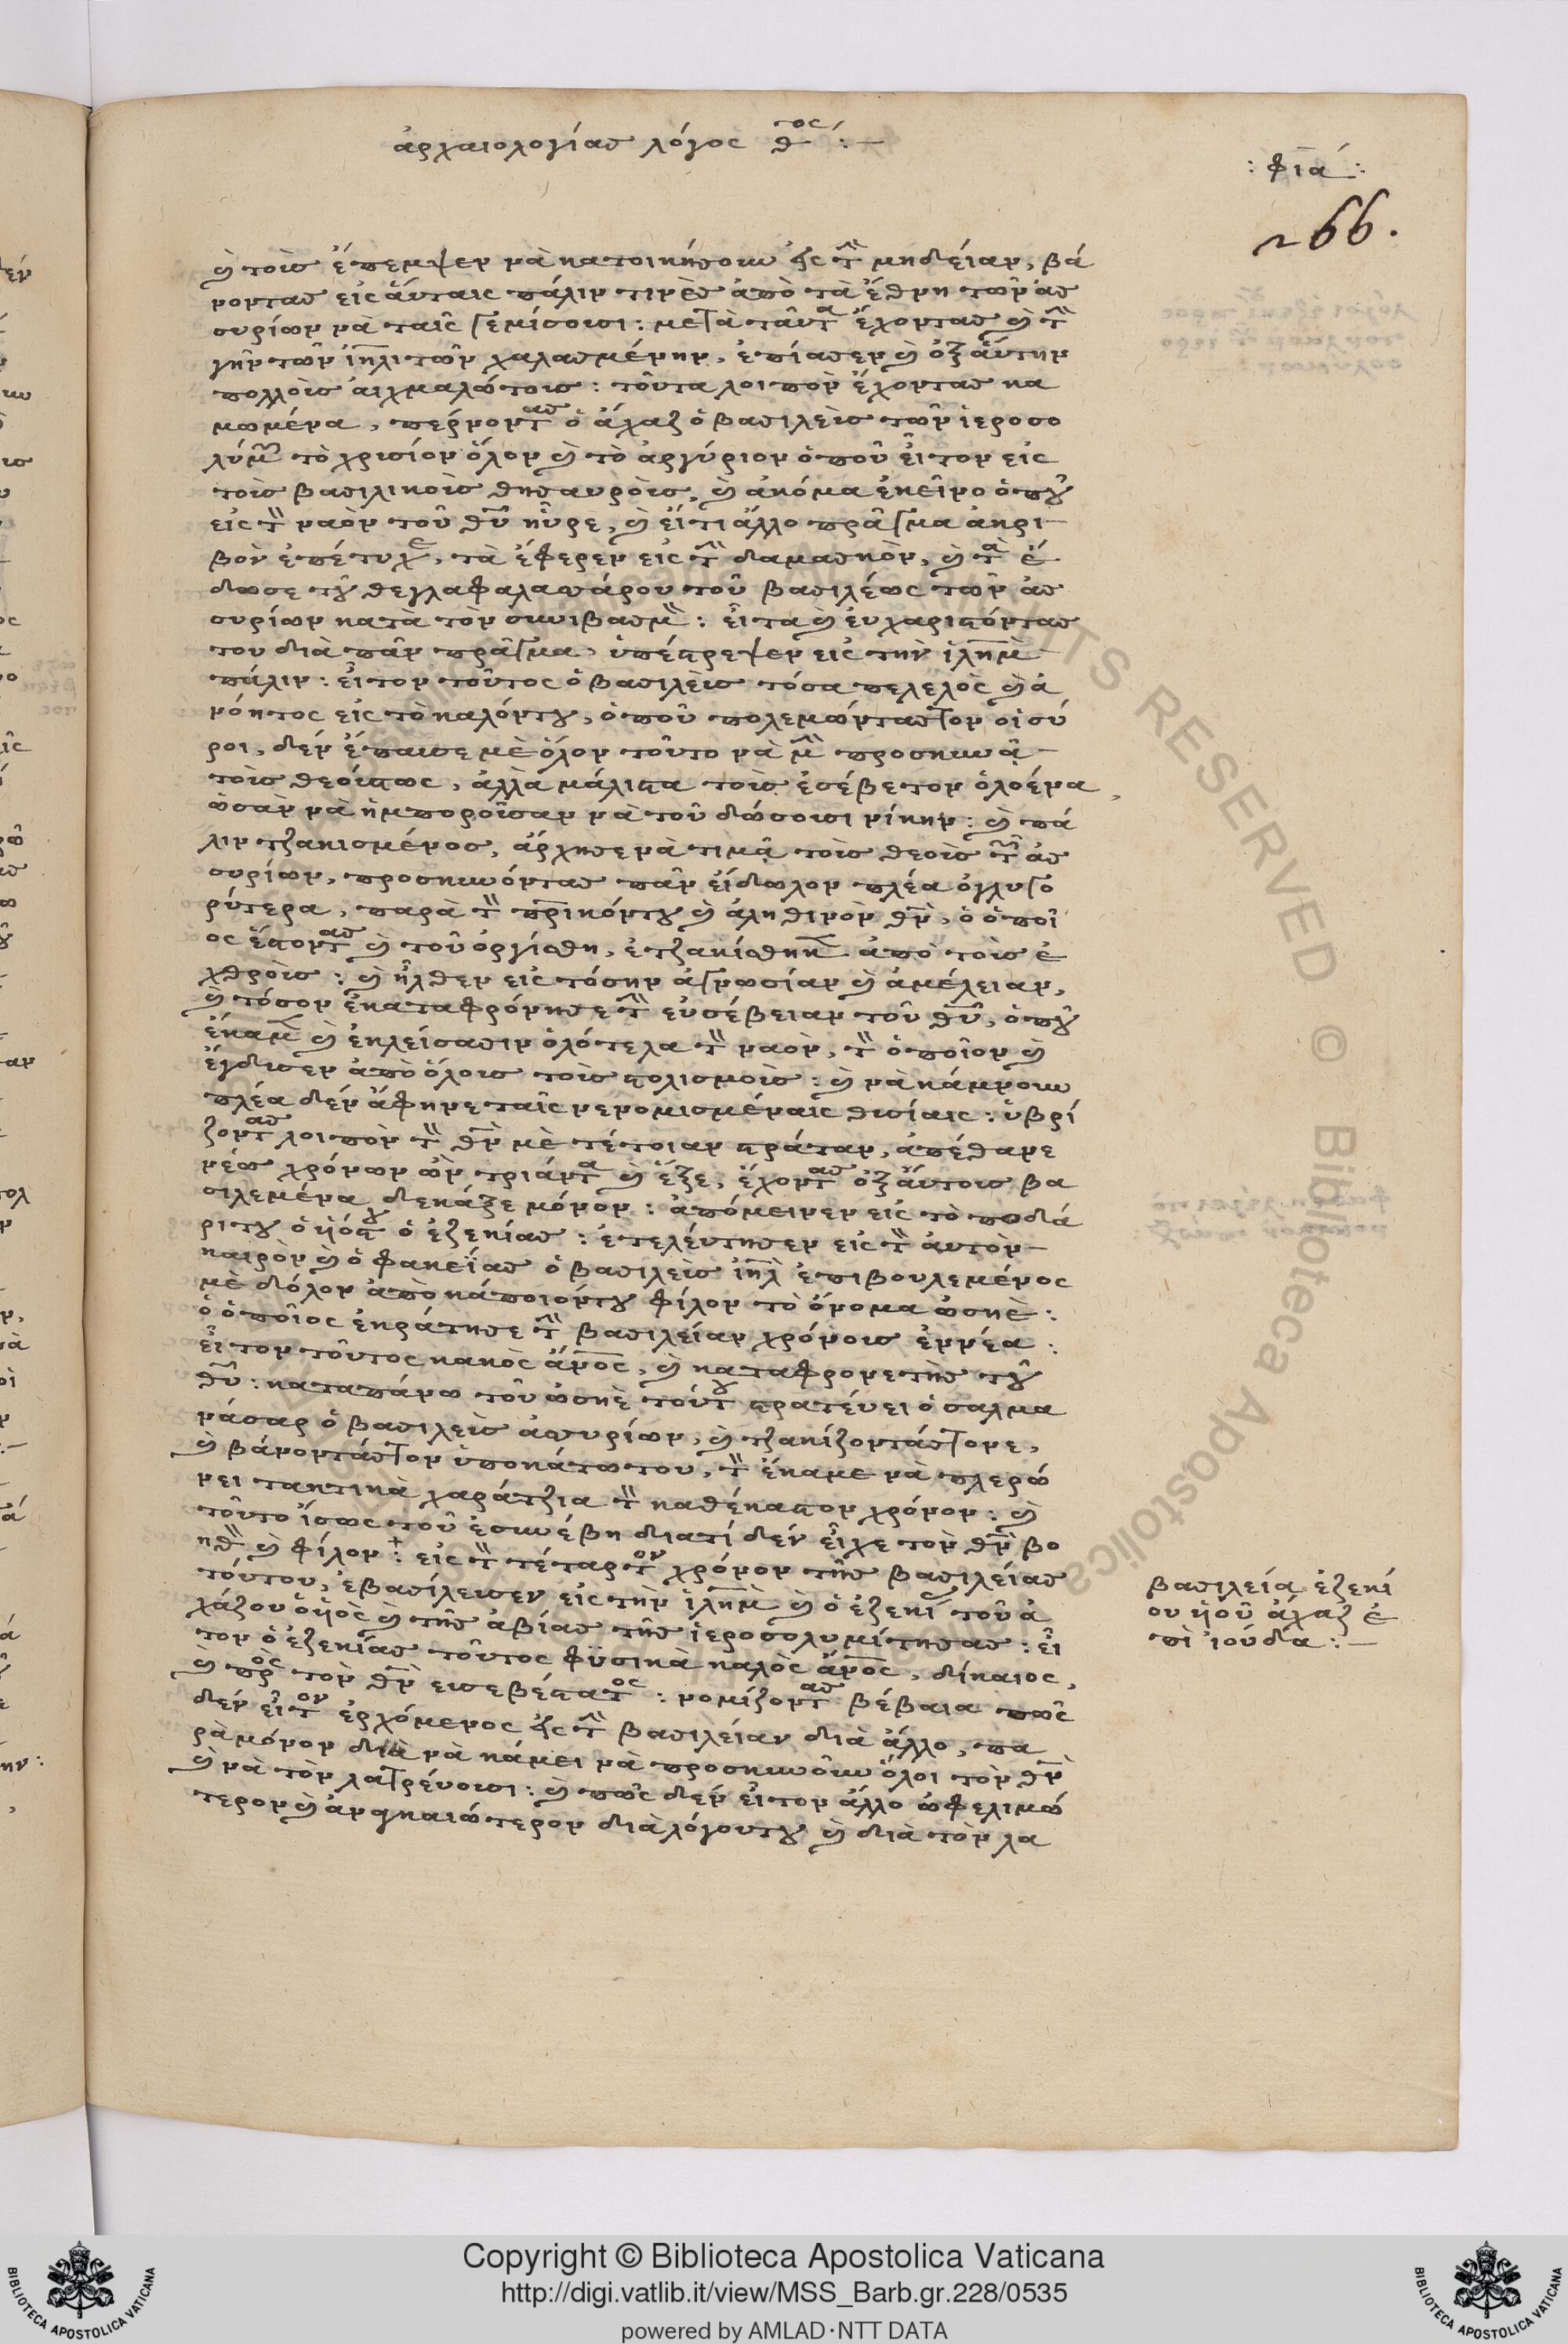 ἀρχαιολογίας λόγος θ^ος :—
: φια :
266.
ϗ τοὺς ἔπεμψεν νὰ κατοικήσουν εἰς τὴν μηδείαν, βά
νοντας εἰς αὕταις πάλιν τινὲς ἀπὸ τὰ ἔθνη τῶν ἀσ
συρίων νὰ ταῖς γεμίσουσι : μετὰ ταῦτα ἔχοντας ϗ τὴν
γῆν τῶν ἰηλιτῶν χαλασμένην, ἐπίασεν ϗ ὀξ αὕτην
πολλοὺς αἰχμαλώτους : τοῦτα λοιπὸν ἔχοντας κα
μωμένα, πέρνοντας ὁ ἄχαζ ὁ βασιλεὺς τῶν ἱεροσο
λύμων τὸ χρισίον ὅλον ϗ τὸ ἀργύριον ὁποῦ εἶτον εἰς
τοὺς βασιλικοὺς θησαυροὺς, ϗ ἀκόμα ἐκεῖνο ὁποῦ
εἰς τὸν ναὸν τοῦ θῦ ηὗρε, ϗ εἴτι ἄλλο πρᾶγμα ἀκρι
βὸν ἐπέτυχε, τὰ ἔφερεν εἰς τὴν δαμασκὸν, ϗ τὰ ἔ
δωσε τοῦ θεγλαφαλασάρου τοῦ βασιλέως τῶν ἀσ
συρίων κατὰ τὸν συνιβασμὸν : εἶτα ϗ ἐυχαριστόντας
τον διὰ πᾶν πρᾶγμα, ὑπέστρεψεν εἰς τὴν ἱλημ
πάλιν : εἶτον τοῦτος ὁ βασιλεὺς τόσα πελελὸς ϗ ἀ
νόητος εἰς τὸ καλόντου, ὁποῦ πολεμώντας τον οἱ σύ
ροι, δὲν ἔπαυσε μὲ ὅλον τοῦτο νὰ μὴν προσκυνᾷ
τοὺς θεούςτως, ἀλλὰ μάλιστα τοὺς ἐσέβετον ὁλοένα,
ὡσὰν νὰ ἠμποροῦσαν νὰ τοῦ δώσουσι νίκην : ϗ πά
λιν τζακισμένος, ἄρχησε νὰ τιμᾷ τοὺς θεοὺς τῶν ἀσ
συρίων, προσκυνόντας πᾶν εἴδωλον πλέα ὀγλυγο
ρύτερα, παρὰ τὸν πρικόντου ϗ ἀληθινὸν θν, ὁ ὁποῖ
ος ἔστοντας ϗ τοῦ ὀργίσθη, ἐτζακίσθηκεν ἀπὸ τοὺς ἐ
χθροὺς : ϗ ἦλθεν εἰς τόσην ἀγνωσίαν ϗ ἀμέλειαν,
ϗ τόσον ἐκαταφρόνησε τὴν εὐσέβειαν τοῦ θῦ, ὁποῦ
ἔκαμεν ϗ ἐκλείσασιν ὁλότελα τὸν ναὸν, τὸν ὁποῖον ϗ
ἔγδισεν ἀπὸ ὅλους τοὺς στολισμοὺς : ϗ νὰ κάμνουν
πλέα δὲν ἄφηνε ταῖς νενομισμέναις θυσίαις : ὑβρί
ζοντας λοιπὸν τὸν θν μὲ τέτοιαν στράταν, ἀπέθανε
νέος χρόνων ὢν τριάντα ϗ ἕξε, ἔχοντας ὀξ αὕτους βα
σιλεμένα δεκάξε μόνον : ἀπόμεινεν εἰς τὸ ποδά
ριτου ὁ ὑιόςτου ὁ ἐζεκίας : ἐτελεύτησεν εἰς τὸν ἀυτὸν
καιρὸν ϗ ὁ φακεΐας ὁ βασιλεὺς ἰηλ ἐπιβουλεμένος
μὲ δόλον ἀπὸ κάποιοντου φίλον τὸ ὄνομα ὠσηὲ :
ὁ ὁποῖος ἐκράτησε τὴν βασιλείαν χρόνους ἐννέα :
εἶτον τοῦτος κακὸς ἄνος, ϗ καταφρονετὴς τοῦ
θῦ : καταπάνω τοῦ ὠσηὲ τούτου στρατέυει ὁ σαλμα
νάσαρ ὁ βασιλεὺς ἀσυρίων, ϗ τζακίζοντάς τονε,
ϗ βάνοντάς τον ὑποκάτω του, τὸν ἔκαμε νὰ πλερώ
νει τακτικὰ χαράτζια τὸν καθέκαστον χρόνον : ϗ
τοῦτο ἴσως τοῦ ἐσυνέβη διατί δὲν εἶχε τὸν θν βο
ηθὸν ϗ φίλον : εἰς τὸν τέταρτον χρόνον τῆς βασιλείας
τούτου, ἐβασίλευσεν εἰς τὴν ἱλημ ϗ ὁ ἐζεκίας τοῦ ἀ
χάζου ὁ ὑιὸς ϗ τῆς ἀβίας τῆς ἱεροσολυμίτησας : εἶ
τον ὁ ἐζεκίας τοῦτος φϋσικὰ καλὸς ἄνος, δίκαιος,
ϗ πρὸς τὸν θν εισεβέστατος : νομίζοντας βέβαια πῶς
δὲν εἶτον ἐρχόμενος εἰς τὴν βασιλείαν διὰ ἄλλο, πα
ρὰ μόνον διὰ νὰ κάμει νὰ προσκυνοῦν ὅλοι τὸν θν
ϗ νὰ τὸν λατρέυουσι : ϗ πῶς δὲν εἶτον ἄλλο ὠφελιμώ
τερον ϗ ἀναγκαιώτερον διὰ λόγουτου ϗ διὰ τὸν λα
βασιλεία ἐζεκί
ου ὑιοῦ ἀχαζ ἐ
πὶ ἰούδα :—
Copyright © Biblioteca Apostolica Vaticana
http://digi.vatlib.it/view/MSS_Barb.gr.228/0535
powered by AMLAD·NTT DATA